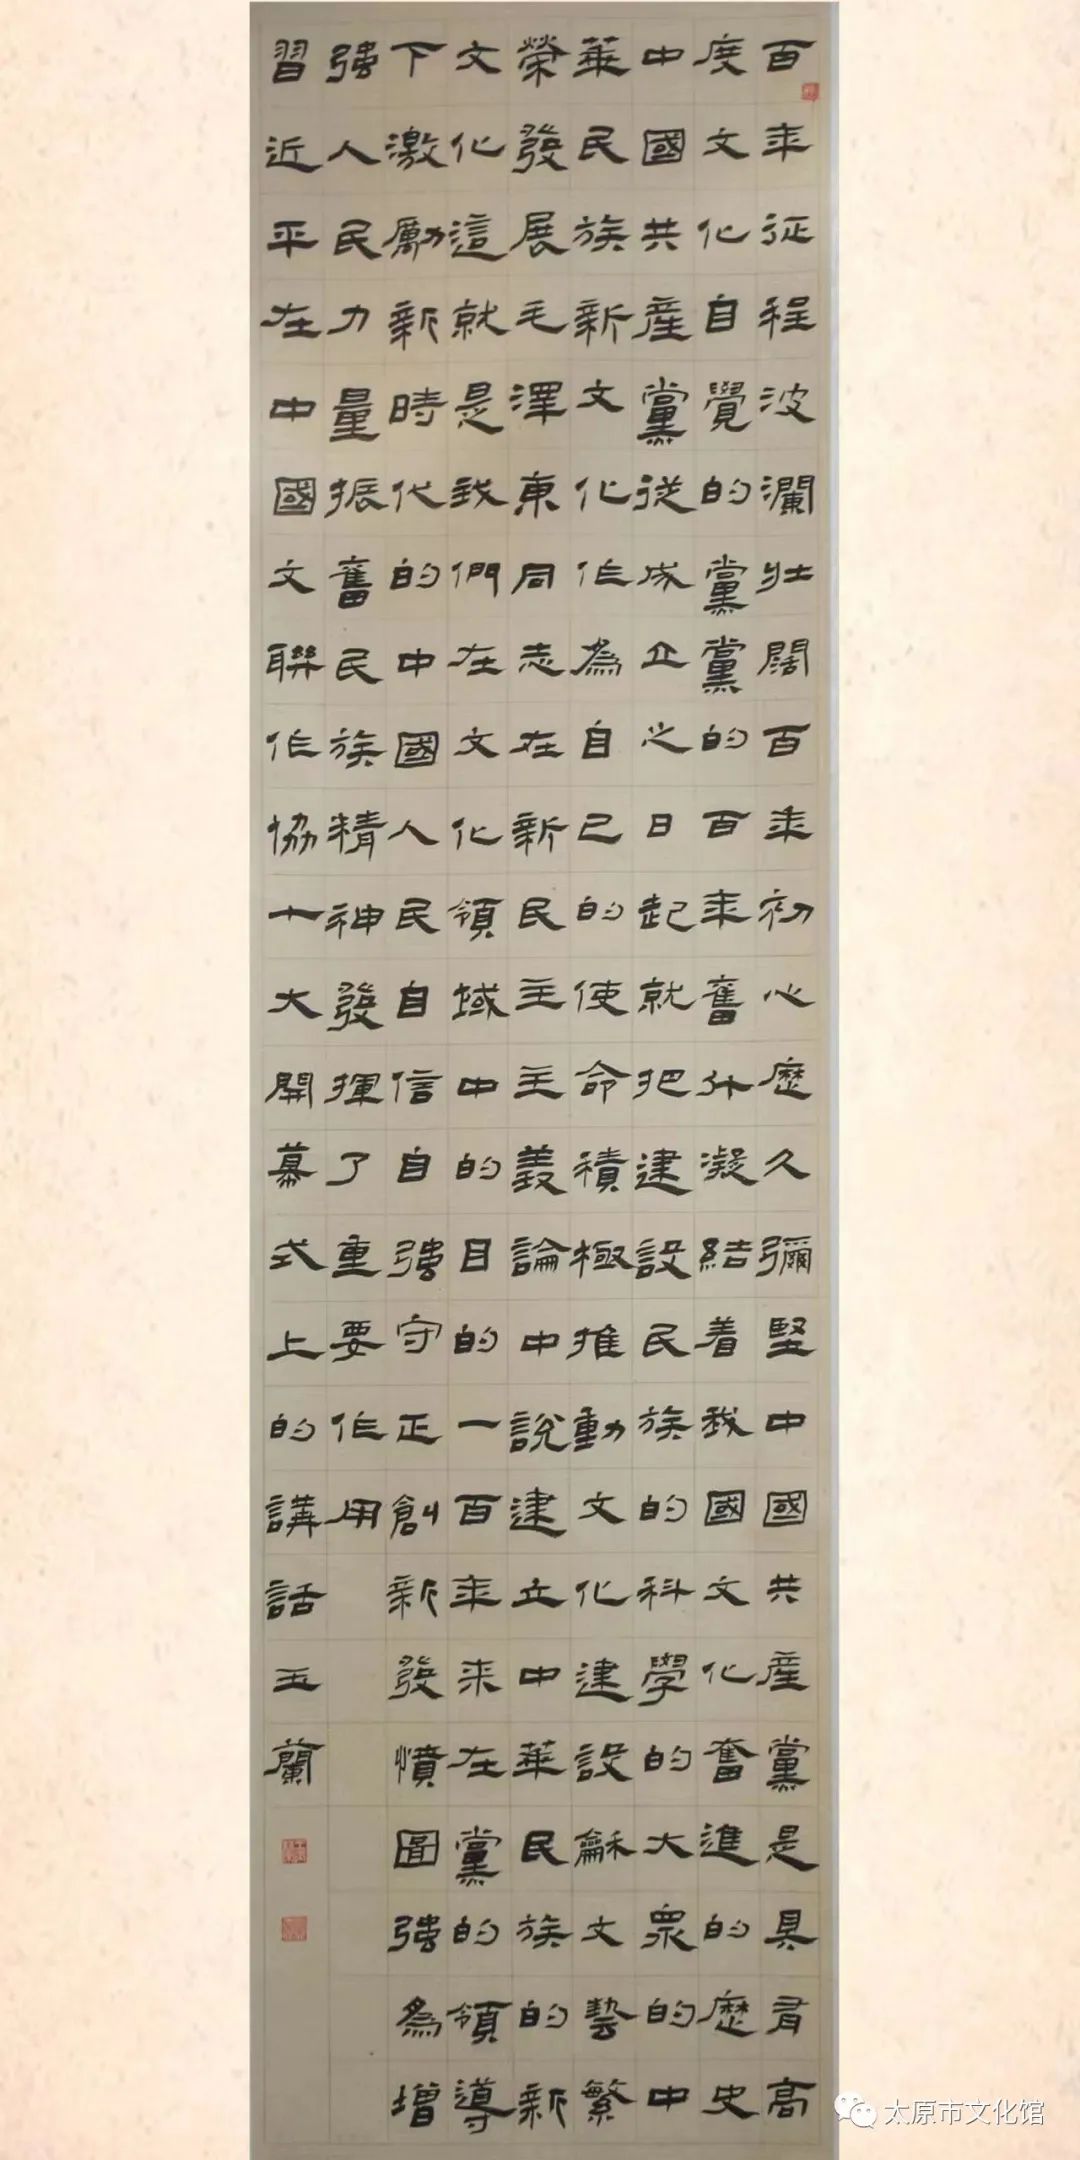 百年征程波瀾壯闊百年初心歷久彌堅中國共產黨是具有高
度文化自覺的黨黨的百年奮斗凝結着我國文化奮進的歷史
中國共產黨從成立之日起就把建設民族的科學的大眾的中
華民族新文化作為自己的使命積極推動文化建設龢文藝繁
榮發展毛澤東同志在新民主主義論中說建立中華民族的新
文化這就是我們在文化領域中的目的一百年来在黨的領導
下激勵新時代的中國人民自信自强守正創新發憤圖强為增
强人民力量振奮民族精神發揮了重要作用
習近平在中國文聯作協十大開幕式上的講話玉蘭
太原市文化馆